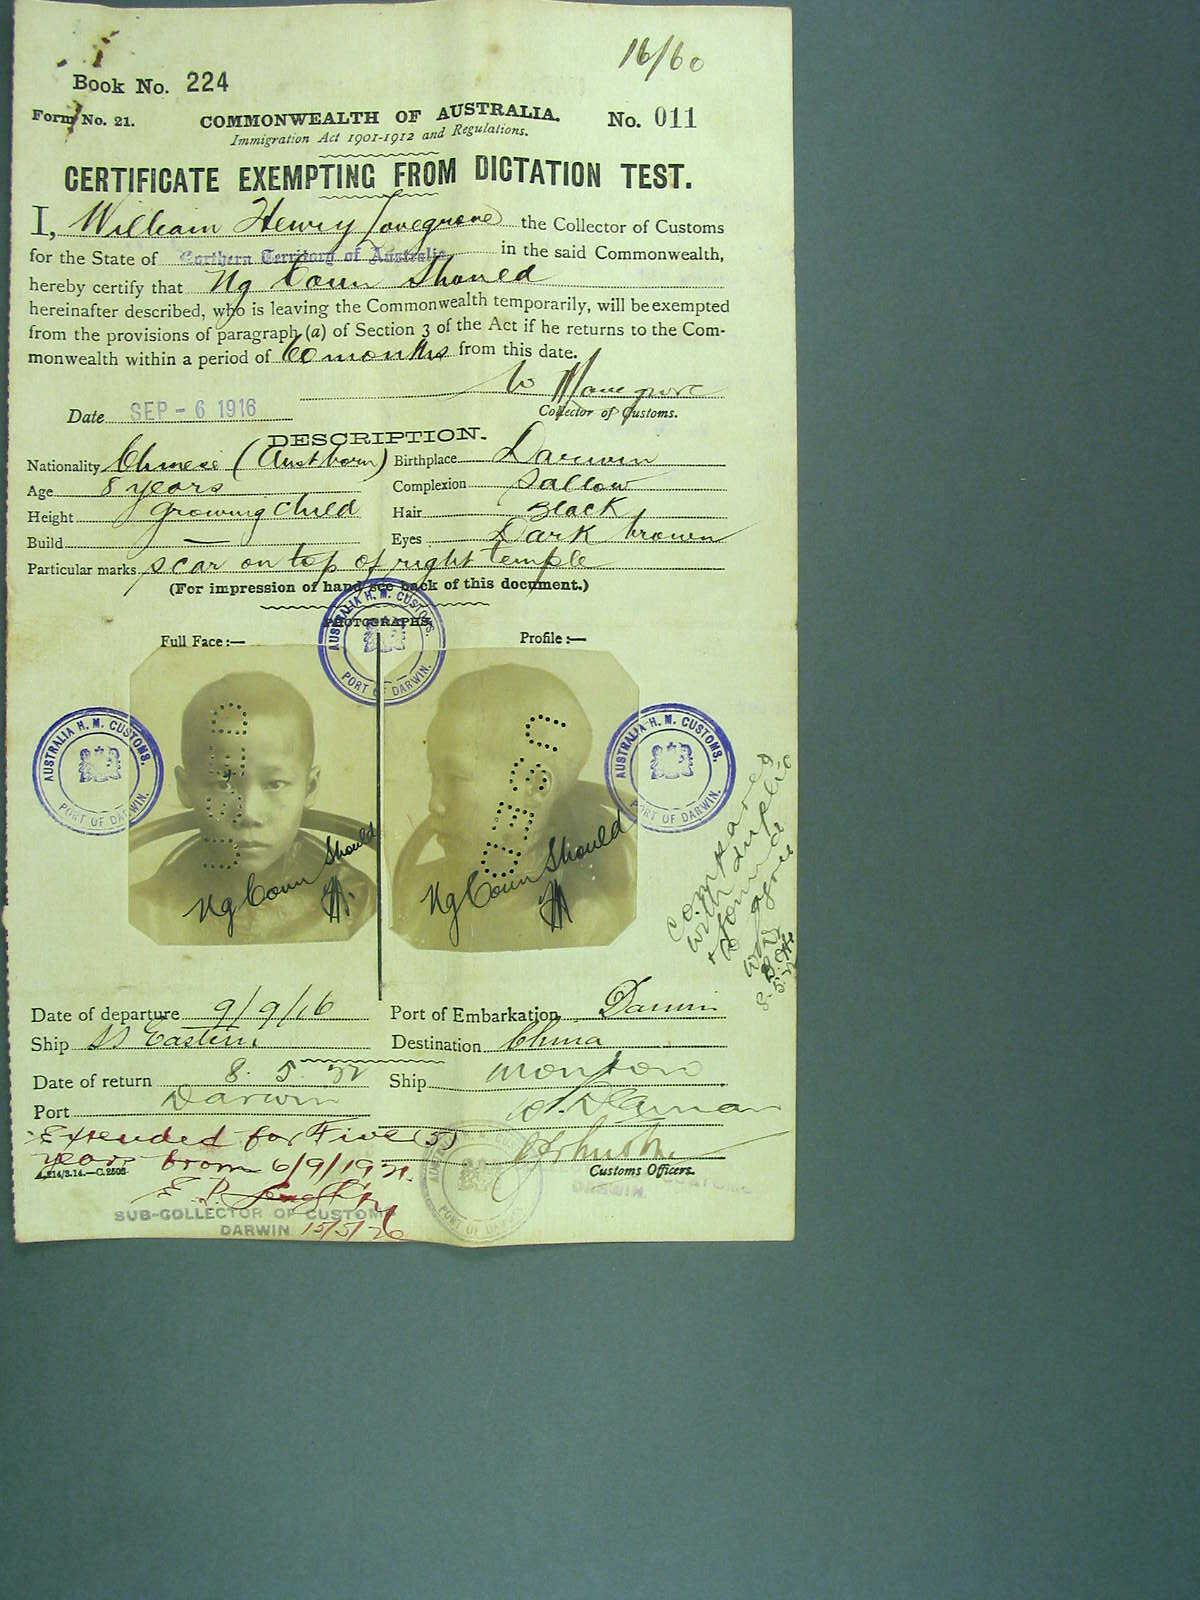 16/60
Book No. 224
Form No. 21.
COMMONWEALTH OF AUSTRALIA.
No. 011
Immigration Act 1901-1912 and Regulations.
CERTIFICATE EXEMPTING FROM DICTATION TEST.
I, William Henry Lovegrove the Collector of Customs
for the State of Northern Territory of Australia in the said Commonwealth,
hereby certify that Ng Coun Shoued
hereinafter described, who is leaving the Commonwealth temporarily, will be exempted
from the provisions of paragraph (a) of Section 3 of the Act if he returns to the Com-
monwealth within a period of 60 months from this date.
W H Lovegrove
Date SEP - 6 1916
Collector of Customs.
DESCRIPTION.
Nationality Chinese (Aust born) Birthplace Darwin
Age 8 years Complexion Sallow
Height growing child Hair Black
Build — Eyes Dark brown
Particular marks scar on top of right temple
(For impression of hand see back of this document.)
PHOTOGRAPHS.
Full Face:— Profile:—
AUSTRALIA H. M. CUSTOMS.
PORT OF DARWIN.
AUSTRALIA H. M. CUSTOMS.
PORT OF DARWIN.
AUSTRALIA H. M. CUSTOMS.
PORT OF DARWIN.
USED
USED
Ng Coun Should
Ng Coun Should
compared
with duplic
& found
to agree
Date of departure 9/9/16 Port of Embarkation Darwin
Ship SS Eastern Destination China
Date of return 8. 5. 22 Ship
Port Darwin
Extended for Five (5)
years from 6/9/1921.
A.214/3.14.—C.2503
Customs Officers.
SUB-COLLECTOR OF CUSTOMS
DARWIN 15/5/
PORT OF DARWIN
DARWIN.